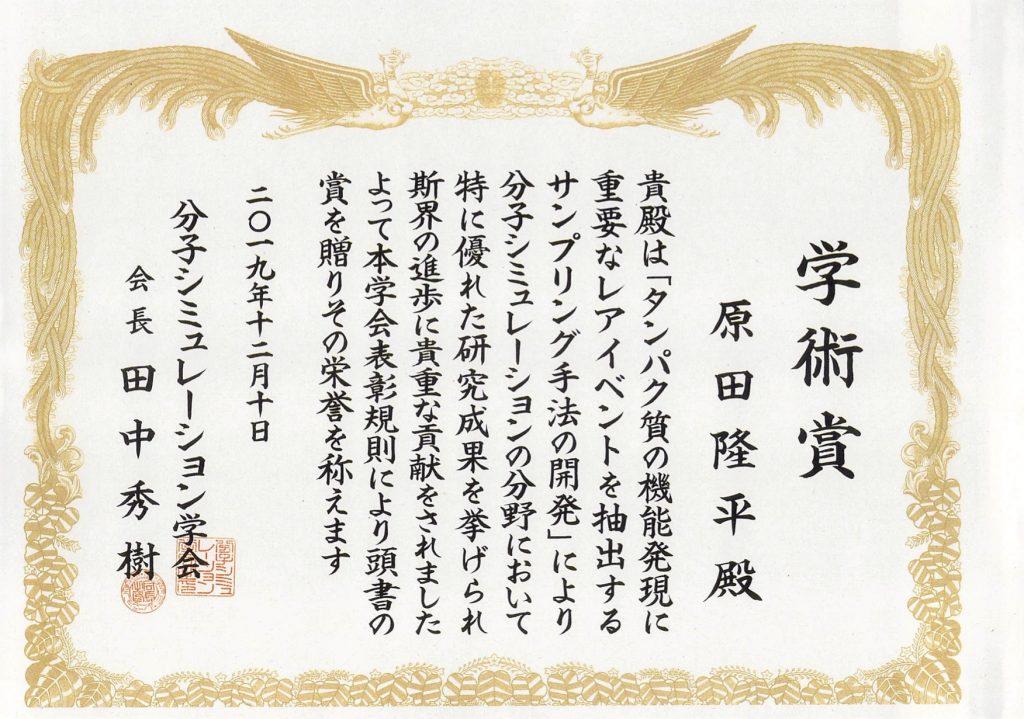 学術賞
原田隆平殿
貴殿は「タンパク質の機能発現に
重要なレアイベントを抽出する
サンプリング手法の開発」により
分子シミュレーションの分野において
特に優れた研究成果を挙げられ
斯界の進歩に貴重な貢献をされました
よって本学会表彰規則により頭書の
賞を贈りその栄誉を称えます
二〇一九年十二月十日
分子シミュレーション学会
会長 田中秀樹